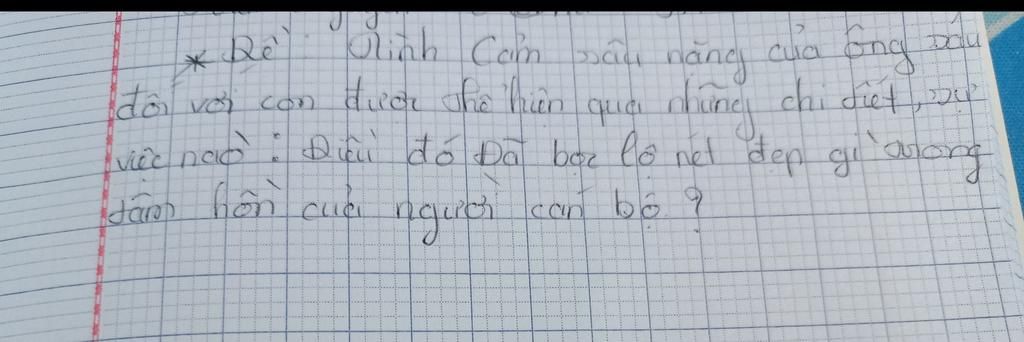 * Đề: Tình Cảm sâu nặng của ông sáu
đối với con được thể hiện qua những chi tiết, sự
việc nào? Điều đó Đã bộc lộ nét đẹp gì trong
tâm hồn của người cán bộ?